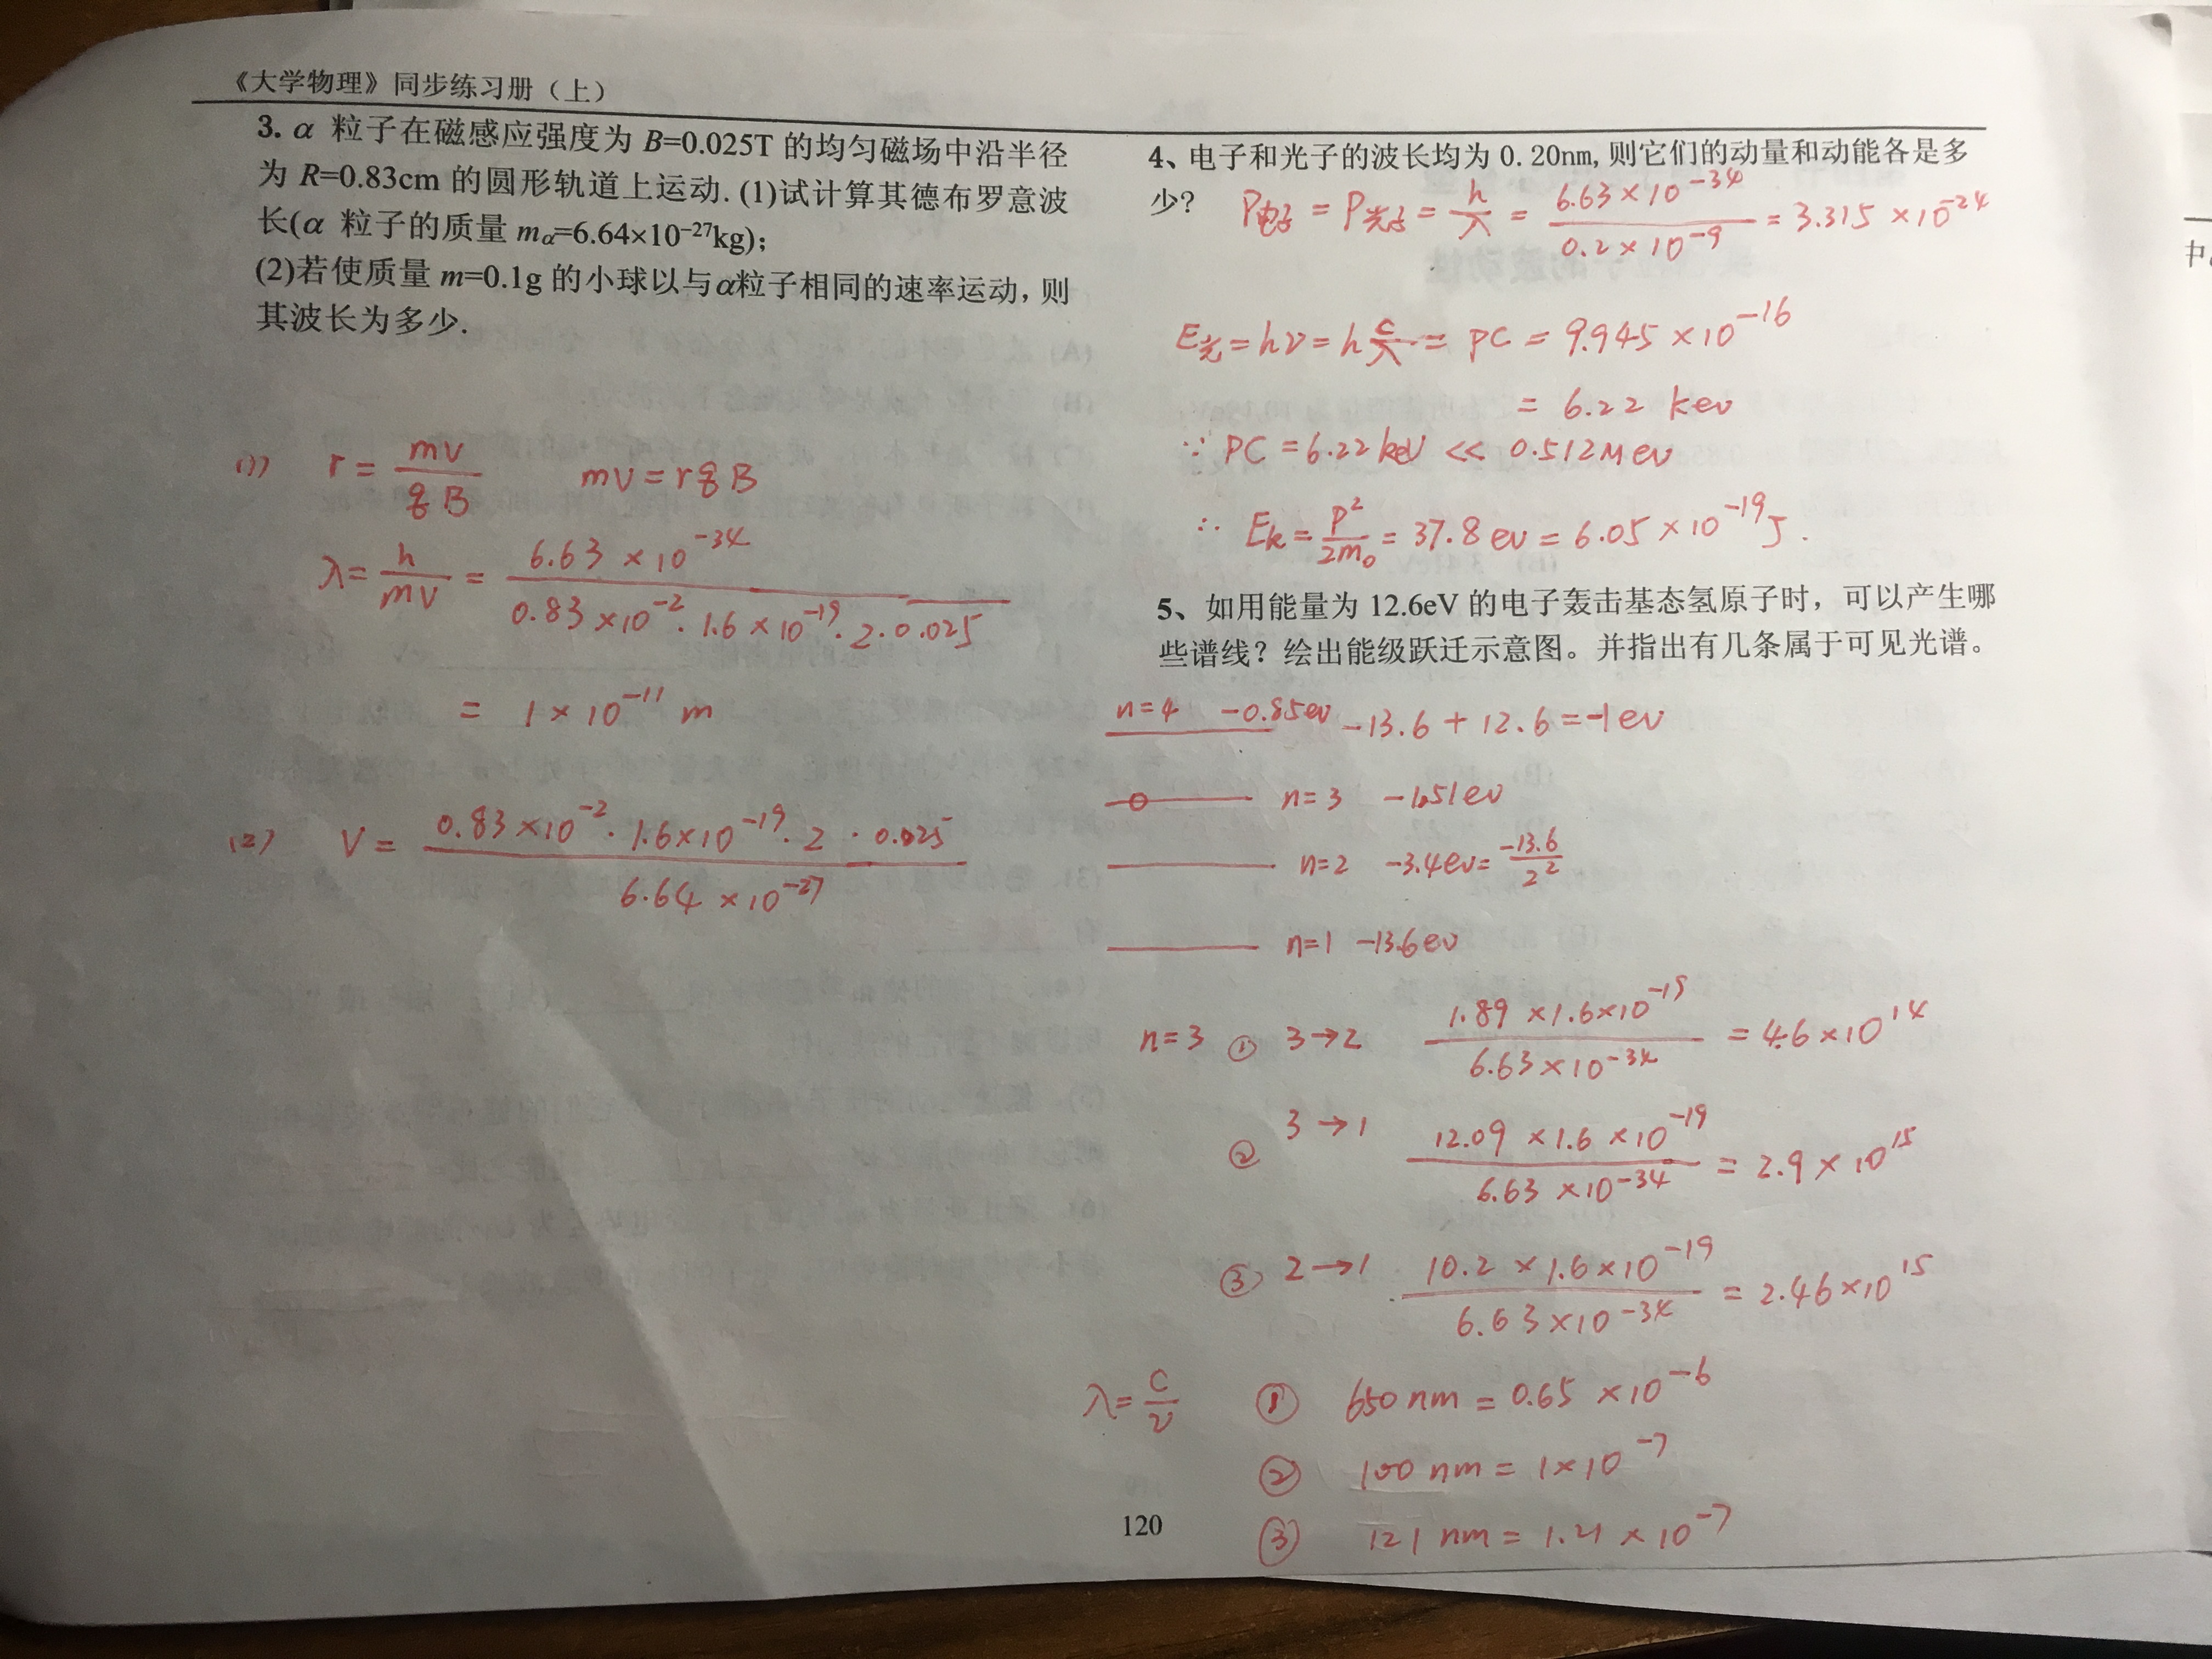 《大学物理》同步练习册（上）
3. α 粒子在磁感应强度为 B=0.025T 的均匀磁场中沿半径
为 R=0.83cm 的圆形轨道上运动. (1)试计算其德布罗意波
长(α 粒子的质量 mα=6.64×10⁻²⁷kg)；
(2)若使质量 m=0.1g 的小球以与α粒子相同的速率运动，则
其波长为多少.
(1) r = mv/qB mv = rqB
λ = h/mv = 6.63 × 10⁻³⁴ / 0.83 × 10⁻² · 1.6 × 10⁻¹⁹ · 2 · 0.025
= 1 × 10⁻¹¹ m
(2) V = 0.83 × 10⁻² · 1.6 × 10⁻¹⁹ · 2 · 0.025 / 6.64 × 10⁻²⁷
4、电子和光子的波长均为 0.20nm, 则它们的动量和动能各是多
少? P电子 = P光子 = h/λ = 6.63 × 10⁻³⁴ / 0.2 × 10⁻⁹ = 3.315 × 10⁻²⁴
E光 = hν = h c/λ = PC = 9.945 × 10⁻¹⁶
= 6.22 kev
∵ PC = 6.22 keV << 0.512 Mev
∴ Ek = P²/2m₀ = 37.8 ev = 6.05 × 10⁻¹⁹ J.
5、如用能量为 12.6eV 的电子轰击基态氢原子时，可以产生哪
些谱线？绘出能级跃迁示意图。并指出有几条属于可见光谱。
n=4 -0.85ev -13.6 + 12.6 = -1 ev
n=3 -1.51ev
n=2 -3.4ev = -13.6/2²
n=1 -13.6ev
n=3 ① 3→2 1.89 × 1.6 × 10⁻¹⁹ / 6.63 × 10⁻³⁴ = 4.6 × 10¹⁴
② 3→1 12.09 × 1.6 × 10⁻¹⁹ / 6.63 × 10⁻³⁴ = 2.9 × 10¹⁵
③ 2→1 10.2 × 1.6 × 10⁻¹⁹ / 6.63 × 10⁻³⁴ = 2.46 × 10¹⁵
λ = c/ν ① 650 nm = 0.65 × 10⁻⁶
② 100 nm = 1 × 10⁻⁷
③ 121 nm = 1.21 × 10⁻⁷
120